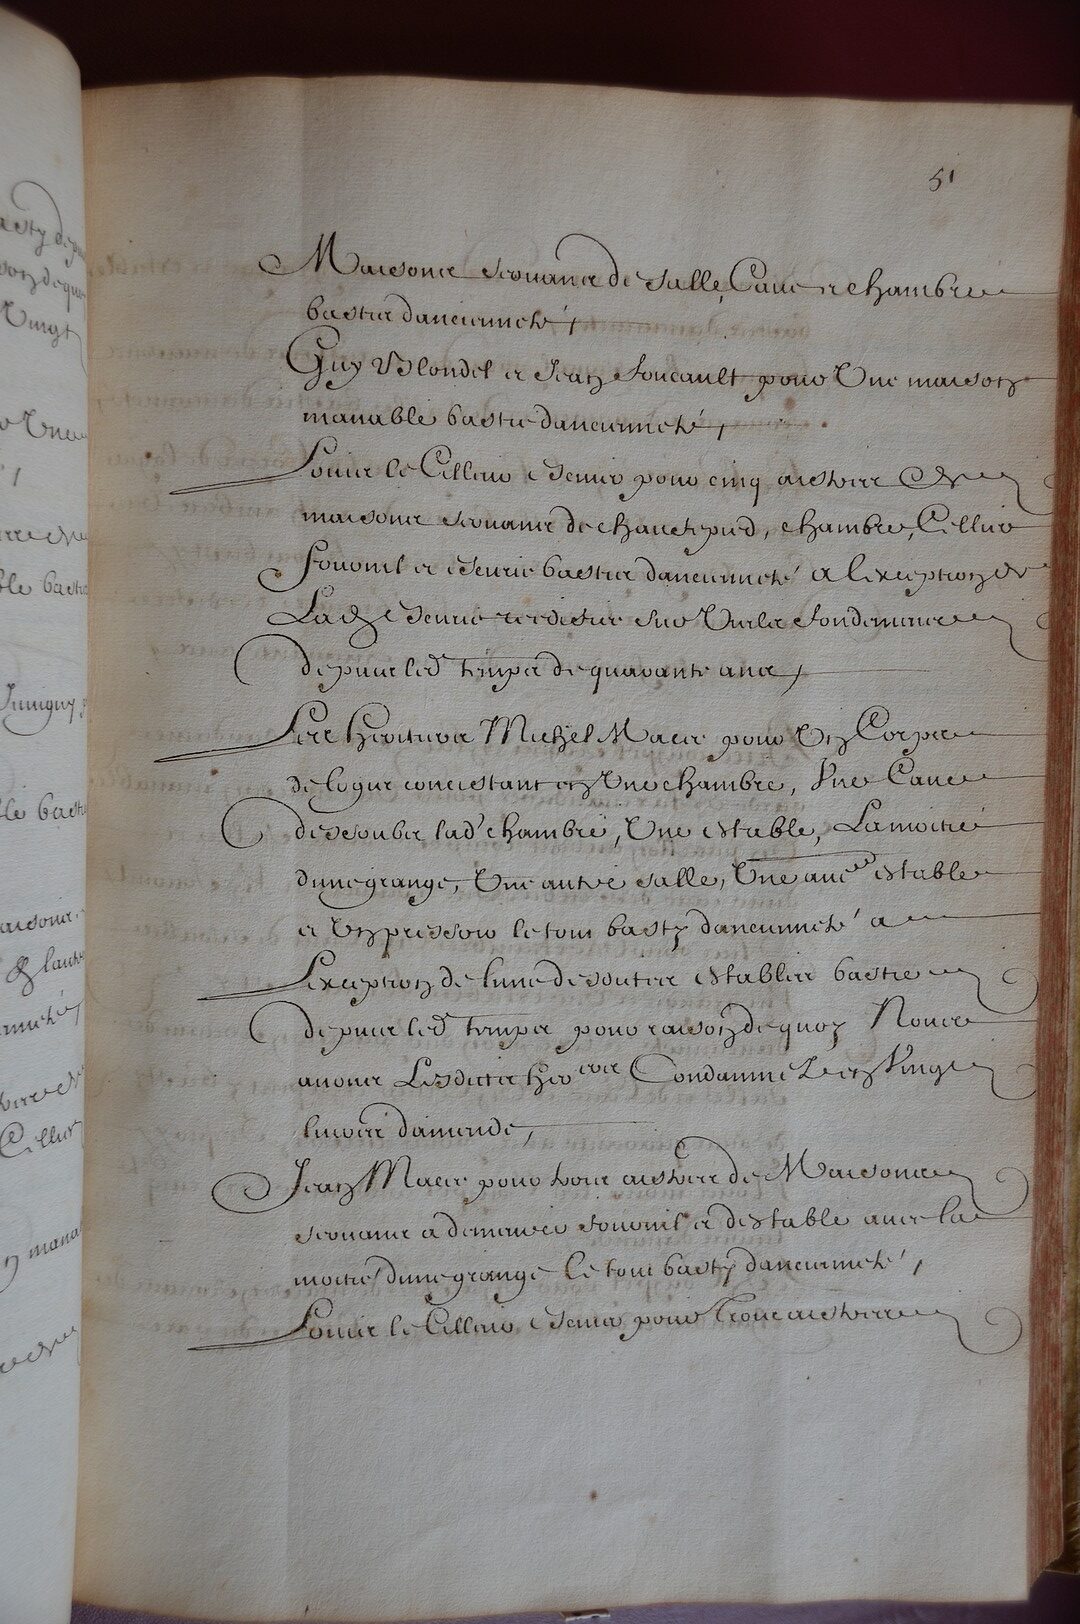 51
Maisons servans de salle, Cave et chambre
bastie d'ancienneté,
Guy Blondel et Jean Foucault pour Une maison
manable bastie d'ancienneté,
Louis le Cellier escuier pour cinq aistres de
maisons servans de chauchepied, chambre, Cellier
fournil et escurie bastis d'ancienneté a l'exception de
Lad escurie reedifiée sur Vieils fondemens
depuis led temps de quarante ans,
Les heritiers Michel Macé pour Un Corps
de logis concistant en Une chambre, Une Cave
dessoubs lad chambre, Une estable, La moitié
d'une grange, Une autre salle, Une au^e estable
et Un pressoir le tout basty d'ancienneté a
L'exception de l'une desdites estables bastie
depuis led temps pour raison de quoy Nous
avons Lesdicts her^ers Condamné en Vingt
livres d'amende,
Jean Macé pour trois aistres de Maisons
servans a demeure fournil et d'estable avec la
moitié d'une grange le tout basty d'ancienneté,
Louis le Cellier escuier pour trois aistres